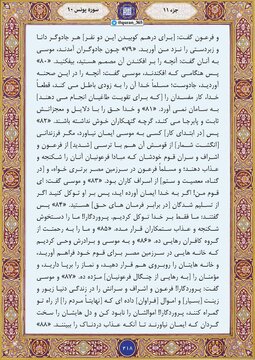 جزء ۱۱
@Quran_365
سوره یونس ۱۰
و فرعون گفت: [برای درهم کوبیدن این دو نفر] هر جادوگر دانا
و زبردستی را نزد من آورید. «۷۹» چون جادوگران آمدند، موسی
به آنان گفت: آنچه را بر افکندن آن مصمم هستید، بیفکنید. «۸۰»
پس هنگامی که افکندند، موسی گفت: آنچه را در این صحنه
آوردید، جادوست؛ مسلماً خدا آن را به زودی باطل می کند، قطعاً
خدا، کار مفسدان را [که برای تقویت طاغیان انجام می دهند]
به سامان نمی آورد. «۸۱» و خدا حق را با دلایل و معجزاتش
ثابت و پابرجا می کند، گرچه گنهکاران خوش نداشته باشند. «۸۲»
پس [در ابتدای کار] کسی به موسی ایمان نیاورد، مگر فرزندانی
[انگشت شمار] از قومش آن هم با ترسی [شدید] از فرعون و
اشراف و سران قوم خودشان که مبادا فرعونیان آنان را شکنجه و
عذاب دهند؛ و مسلماً فرعون در سرزمین مصر برتری خواه، و [در
گناه، معصیت و ستم] از اسراف کاران بود. «۸۳» و موسی گفت: ای
قوم من! اگر به خدا ایمان آورده اید، پس بر او توکل کنید اگر
از تسلیم شدگان [در برابر فرمان های حق] هستید. «۸۴» پس
گفتند: ما فقط بر خدا توکل کردیم. پروردگارا! ما را دستخوش
شکنجه و عذاب ستمکاران قرار مده. «۸۵» و ما را به رحمتت از
گروه کافران رهایی ده. «۸۶» و به موسی و برادرش وحی کردیم
که خانه هایی در سرزمین مصر برای قوم خود فراهم آورید،
و خانه هایتان را روبروی هم قرار دهید، و نماز را برپا دارید، و
مؤمنان را [به رهایی از چنگال فرعونیان] مژده ده. «۸۷» و موسی
گفت: پروردگارا! فرعون و اشراف و سرانش را در زندگی دنیا زیور و
زینت [بسیار] و اموال [فراوان] داده ای که [نهایتاً مردم را] از راه تو
گمراه کنند، پروردگارا! اموالشان را نابود کن و دل هایشان را سخت
گردان که ایمان نیاورند تا آنکه عذاب دردناک را ببینند. «۸۸»
۲۱۸